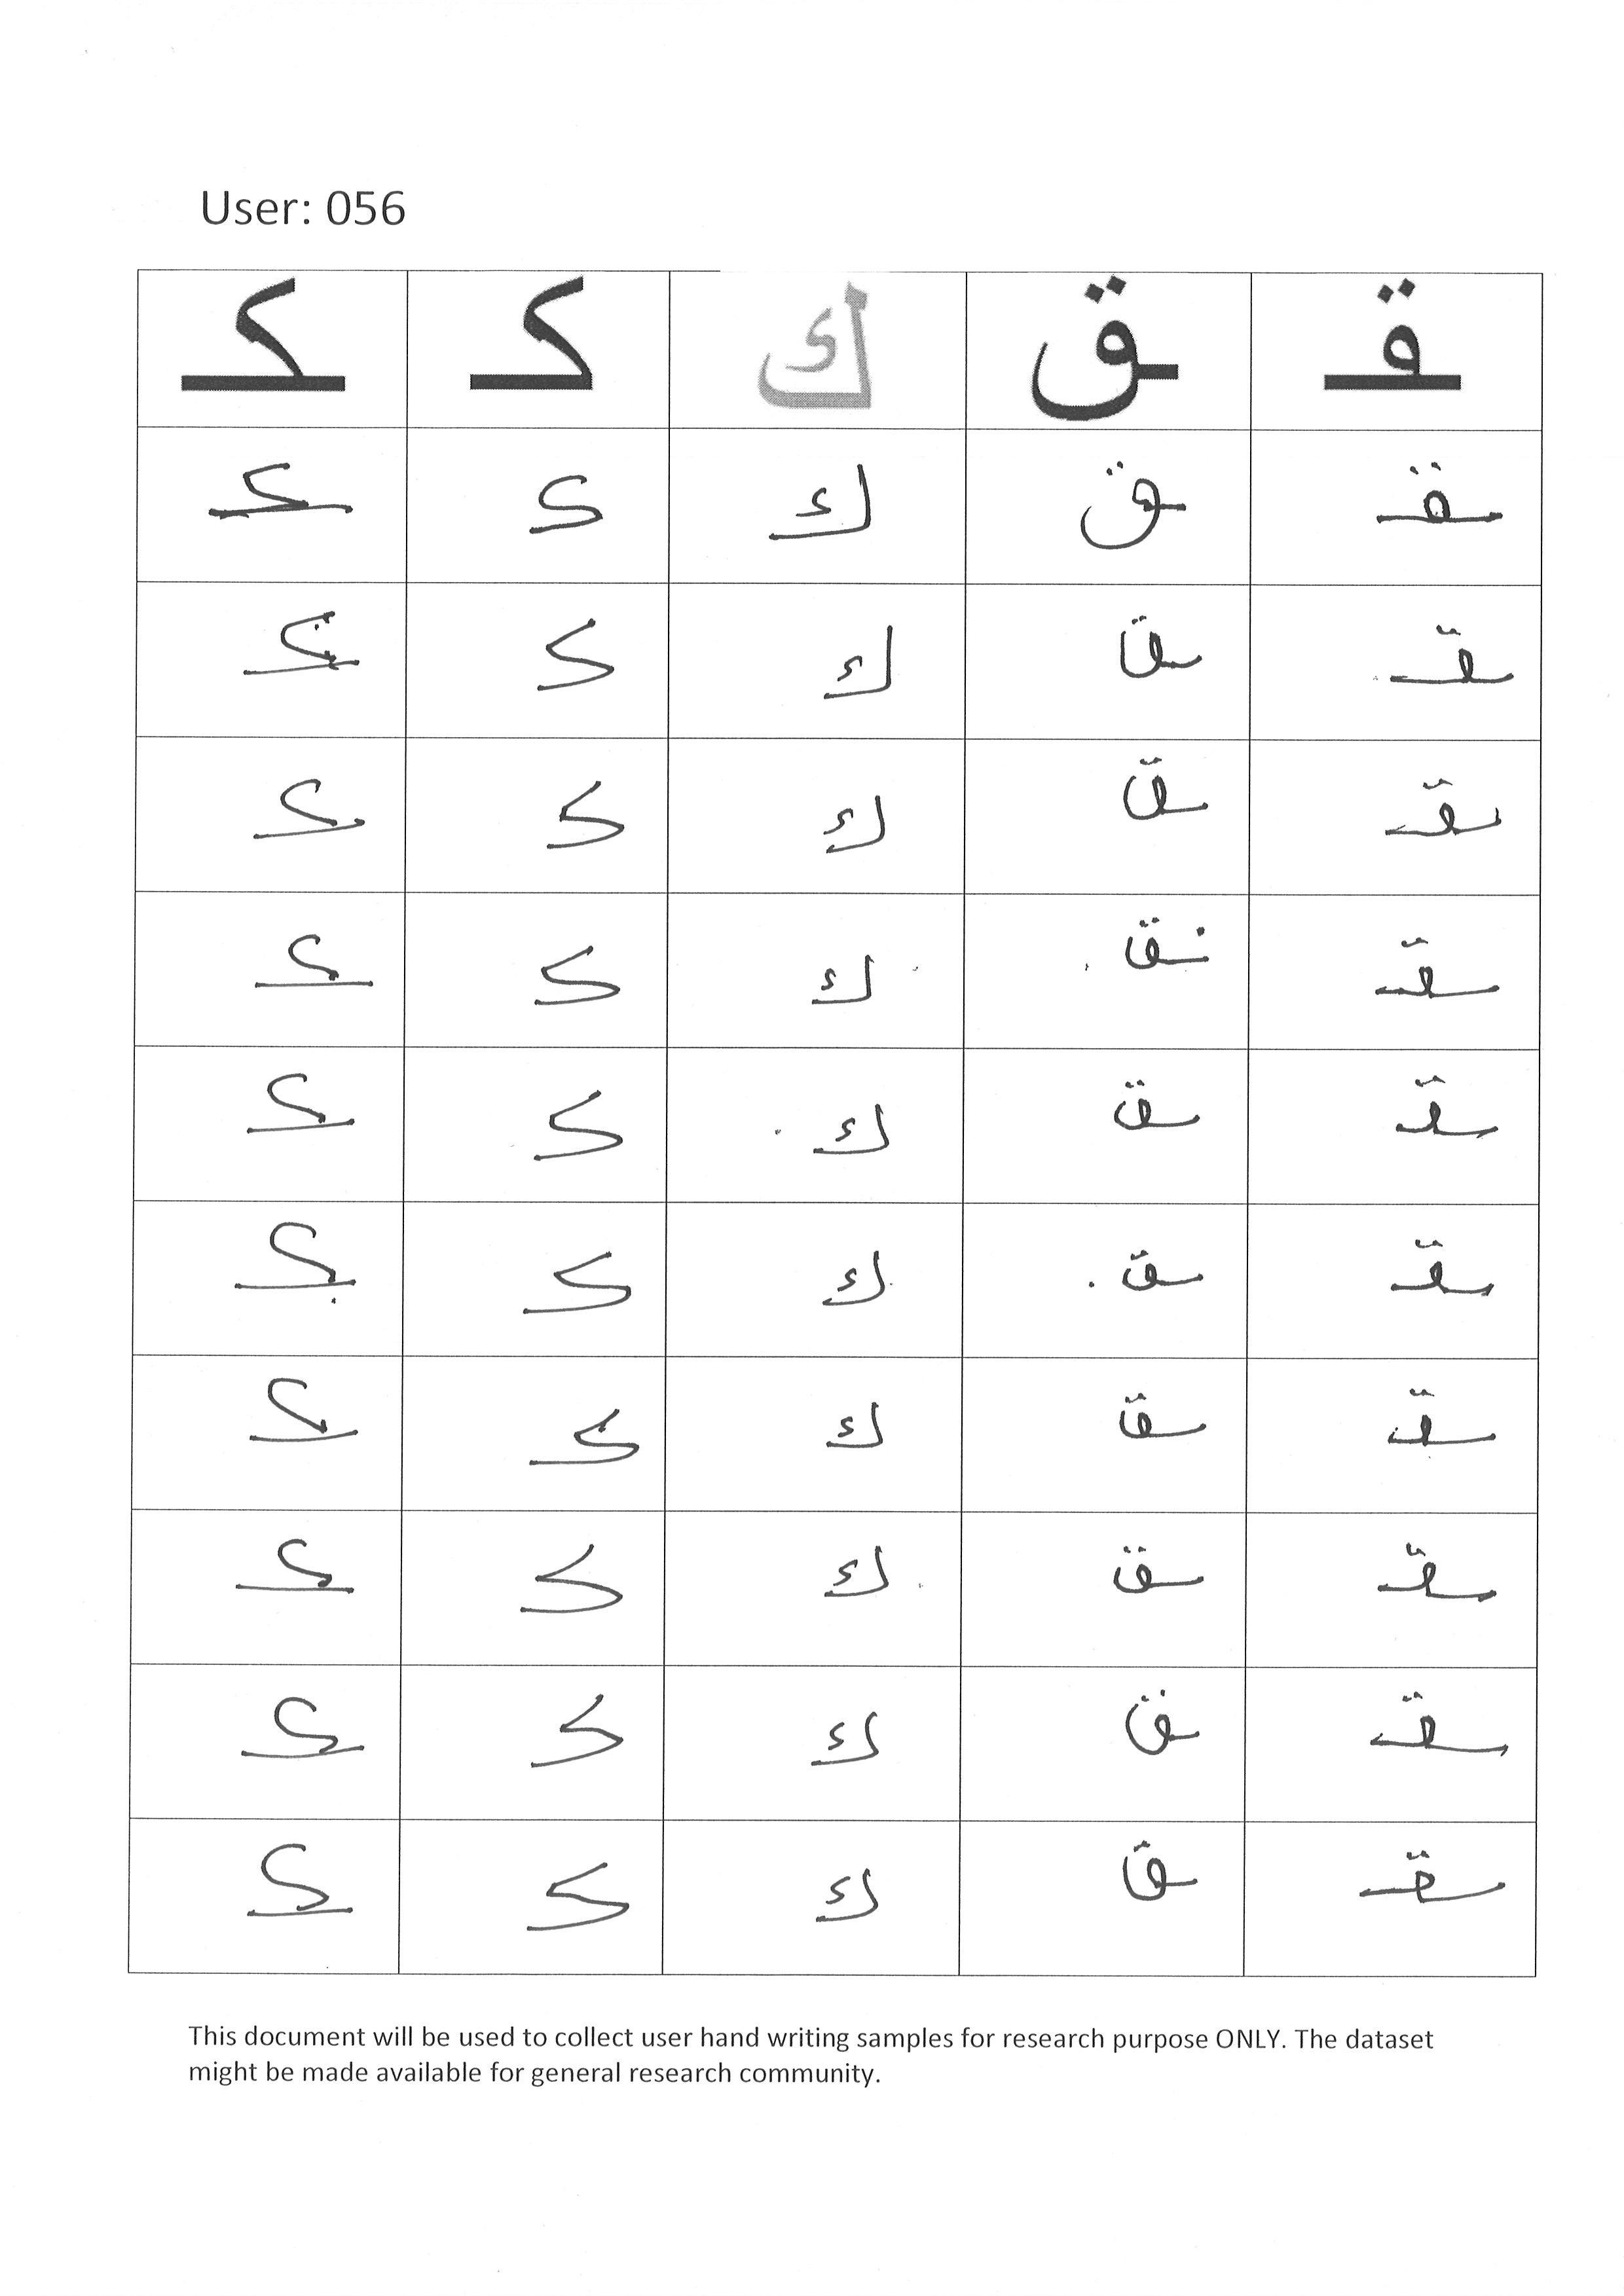 User: 056
ـقـ ـق ك كـ ـكـ
ـقـ ـق ك كـ ـكـ
ـقـ ـق ك كـ ـكـ
ـقـ ـق ك كـ ـكـ
ـقـ ـق ك كـ ـكـ
ـقـ ـق ك كـ ـكـ
ـقـ ـق ك كـ ـكـ
ـقـ ـق ك كـ ـكـ
ـقـ ـق ك كـ ـكـ
ـقـ ـق ك كـ ـكـ
ـقـ ـق ك كـ ـكـ
This document will be used to collect user hand writing samples for research purpose ONLY. The dataset
might be made available for general research community.